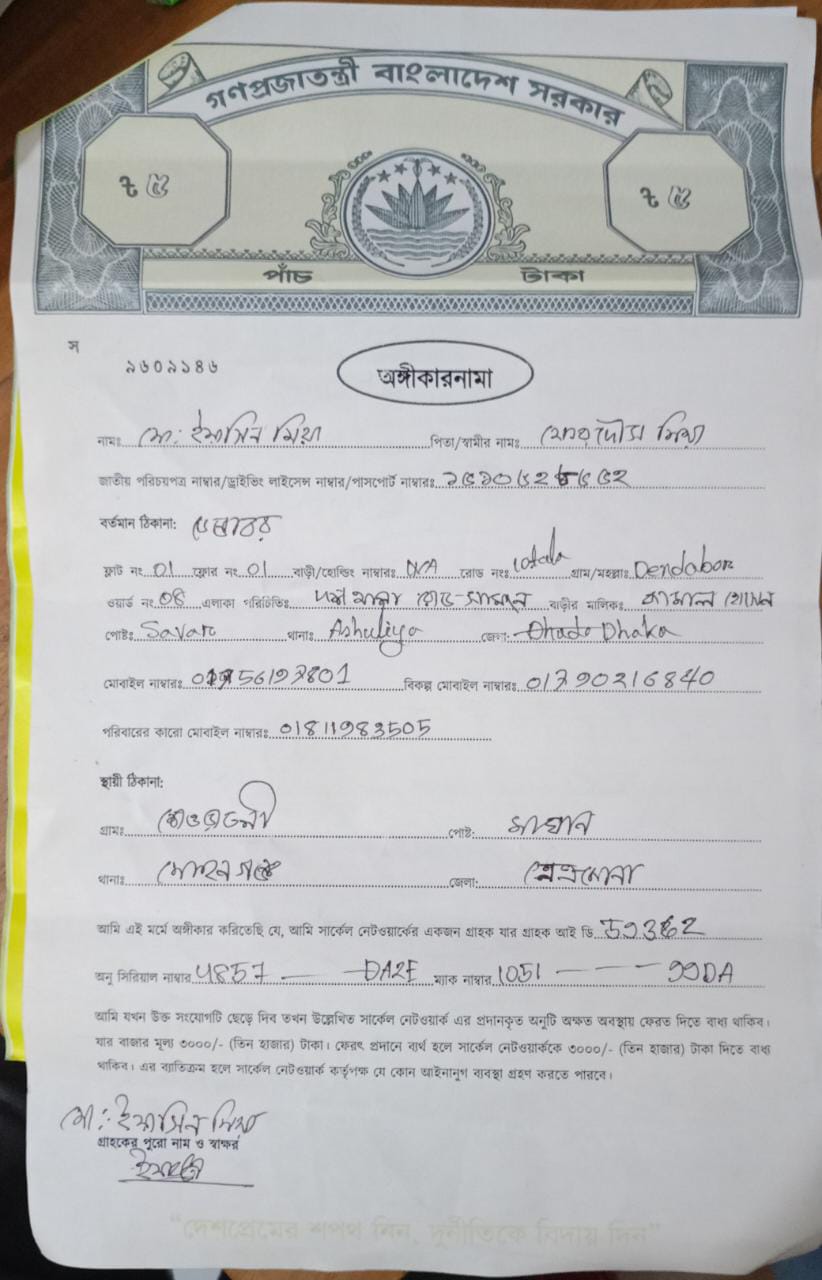 গণপ্রজাতন্ত্রী বাংলাদেশ সরকার
৳ ৫ ৳ ৫
পাঁচ টাকা
স
৯৬০৯১৪৬
অঙ্গীকারনামা
নামঃ মো: ইয়াসিন মিয়া পিতা/স্বামীর নামঃ ফেরদৌস মিয়া
জাতীয় পরিচয়পত্র নাম্বার/ড্রাইভিং লাইসেন্স নাম্বার/পাসপোর্ট নাম্বারঃ
বর্তমান ঠিকানা:
ফ্লাট নং 01 ফ্লোর নং 01 বাড়ী/হোল্ডিং নাম্বারঃ N/A রোড নংঃ গ্রাম/মহল্লাঃ Dendabor
ওয়ার্ড নং 08 এলাকা পরিচিতিঃ বাড়ীর মালিকঃ কামাল হোসেন
পোষ্টঃ Savar থানাঃ Ashuliya জেলা: Dhaka
মোবাইল নাম্বারঃ বিকল্প মোবাইল নাম্বারঃ 01790216840
পরিবারের কারো মোবাইল নাম্বারঃ 01811983505
স্থায়ী ঠিকানা:
গ্রামঃ পোষ্ট:
থানাঃ মোহনগঞ্জ জেলা: নেত্রকোনা
আমি এই মর্মে অঙ্গীকার করিতেছি যে, আমি সার্কেল নেটওয়ার্কের একজন গ্রাহক যার গ্রাহক আই ডি
অনু সিরিয়াল নাম্বার 4857 — DA2E ম্যাক নাম্বার 1051 — — — 99DA
আমি যখন উক্ত সংযোগটি ছেড়ে দিব তখন উল্লেখিত সার্কেল নেটওয়ার্ক এর প্রদানকৃত অনুটি অক্ষত অবস্থায় ফেরত দিতে বাধ্য থাকিব।
যার বাজার মূল্য ৩০০০/- (তিন হাজার) টাকা। ফেরৎ প্রদানে ব্যর্থ হলে সার্কেল নেটওয়ার্ককে ৩০০০/- (তিন হাজার) টাকা দিতে বাধ্য
থাকিব। এর ব্যতিক্রম হলে সার্কেল নেটওয়ার্ক কর্তৃপক্ষ যে কোন আইনানুগ ব্যবস্থা গ্রহণ করতে পারবে।
মো: ইয়াসিন মিয়া
গ্রাহকের পুরো নাম ও স্বাক্ষর
"দেশপ্রেমের শপথ নিন, দুর্নীতিকে বিদায় দিন"